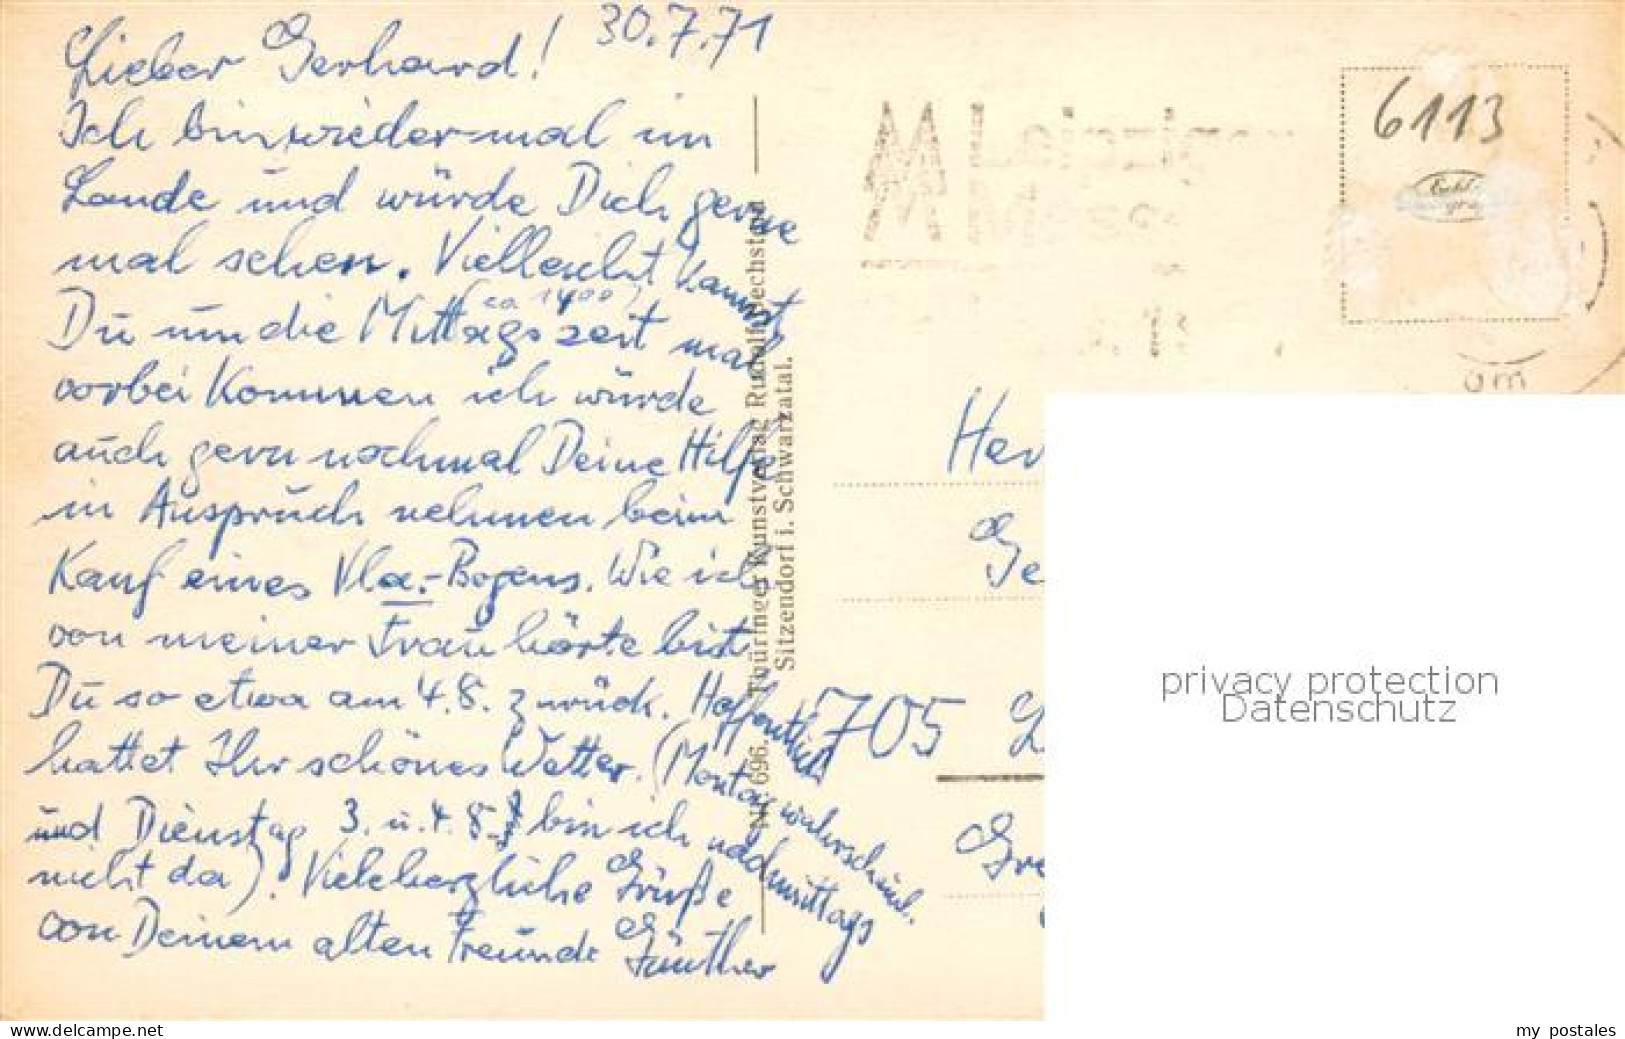 30.7.71
Lieber Gerhard!
Ich bin wieder mal im
Lande und würde Dich gerne
mal sehen. Vielleicht kannst
Du um die Mittagszeit (ca 14⁰⁰) mal
vorbei kommen ich würde
auch gern nochmal Deine Hilfe
in Anspruch nehmen beim
Kauf eines Vla.-Bogens. Wie ich
von meiner Frau hörte bist
Du so etwa am 4.8. zurück. Hoffentlich
hattet Ihr schönes Wetter. (Montag wahrscheinl.
und Dienstag 3. u. 4. 8. bin ich nachmittags
nicht da). Viele herzliche Grüße
von Deinem alten Freunde Günther
Nr. 696. Thüringer Kunstverlag Rudolf Bechstein
Sitzendorf i. Schwarzatal.
M Leipziger
Messe
6113
Echt
am
Her
Ge
705 L
Gre
privacy protection
Datenschutz
www.ak-ansichtskarten.de
my postales